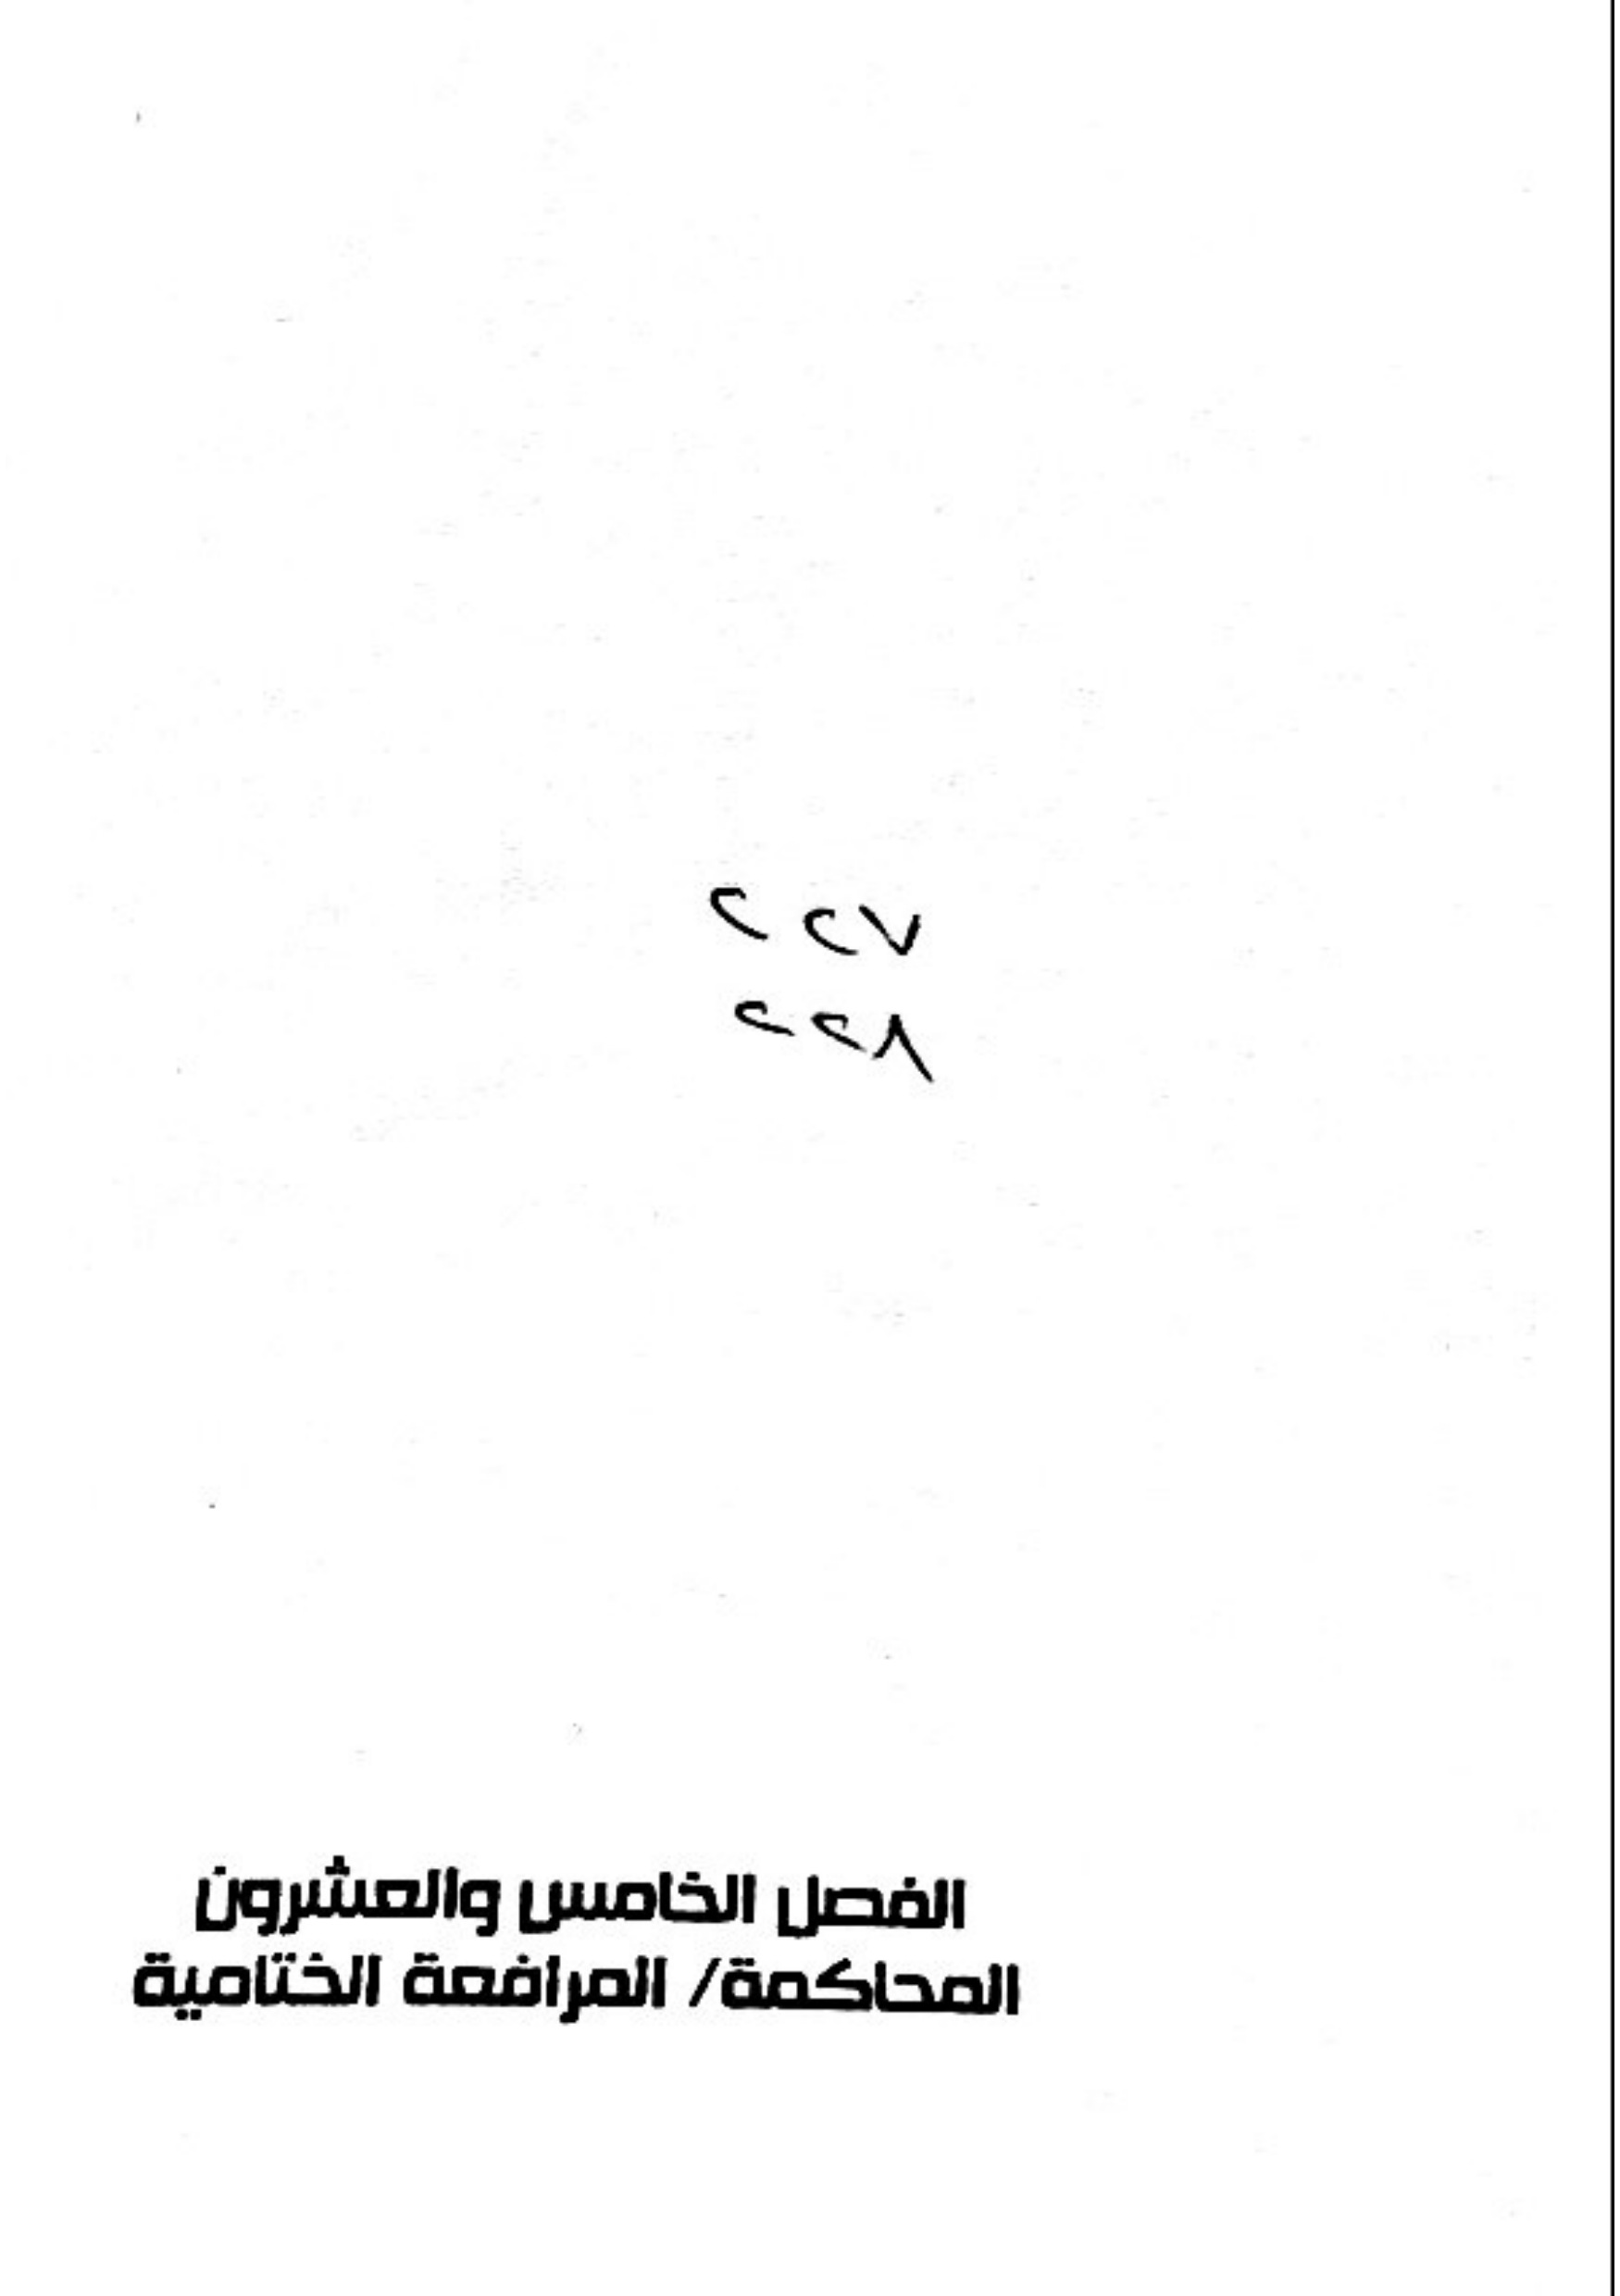 ٢٢٧
٢٢٨
الفصل الخامس والعشرون
المحاكمة/ المرافعة الختامية